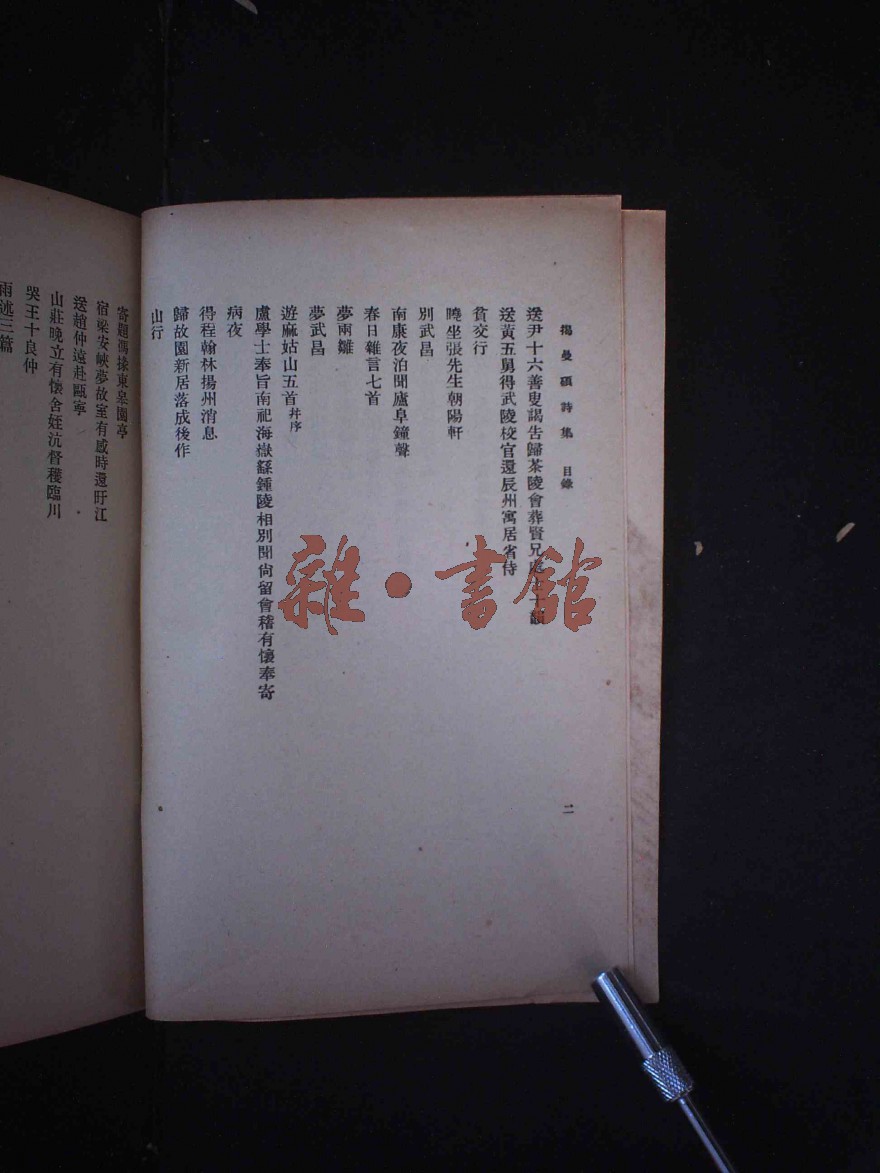 揭曼碩詩集 目錄
送尹十六善叟謁告歸茶陵會葬賢兄處士十韻
送黃五舅得武陵校官還辰州寓居省侍
貧交行
曉坐張先生朝陽軒
別武昌
南康夜泊聞廬阜鐘聲
春日雜言七首
夢兩雛
夢武昌
遊麻姑山五首并序
盧學士奉旨南祀海嶽繇鍾陵相別聞尙留會稽有懷奉寄
病夜
得程翰林揚州消息
歸故園新居落成後作
山行
二
寄題馮掾東皋園亭
宿梁安峽夢故室有感時還旴江
送趙仲遠赴甌寧
山莊晚立有懷舍姪沆督穫臨川
哭王十良仲
雨述三篇
雜·書館